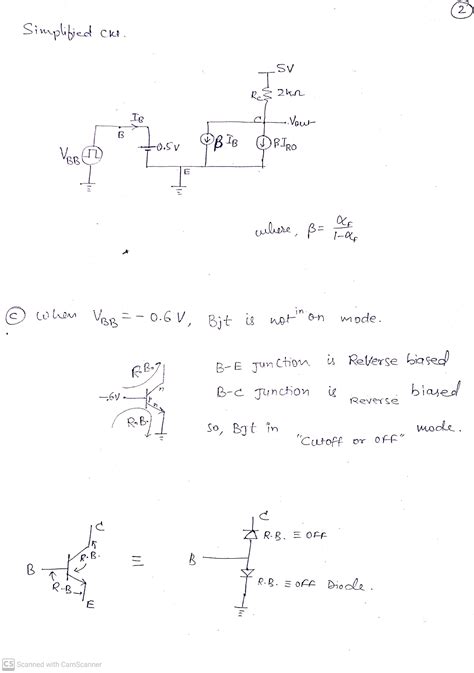 2
Simplified ckt.
5V
Rc 2kΩ
C Vout
IB
B
VBB
0.5V
βIB
βIRO
E
where, β = αF / 1-αF
(c) when VBB = -0.6V, Bjt is not in on mode.
B-E junction is Reverse biased
B-C junction is Reverse biased
So, Bjt in "Cutoff or OFF" mode.
R.B.
n
-.6V
P
n
R.B.
C
R.B.
B
R.B.
E
≡
C
R.B. ≡ OFF
B
R.B. ≡ OFF Diode.
CS Scanned with CamScanner